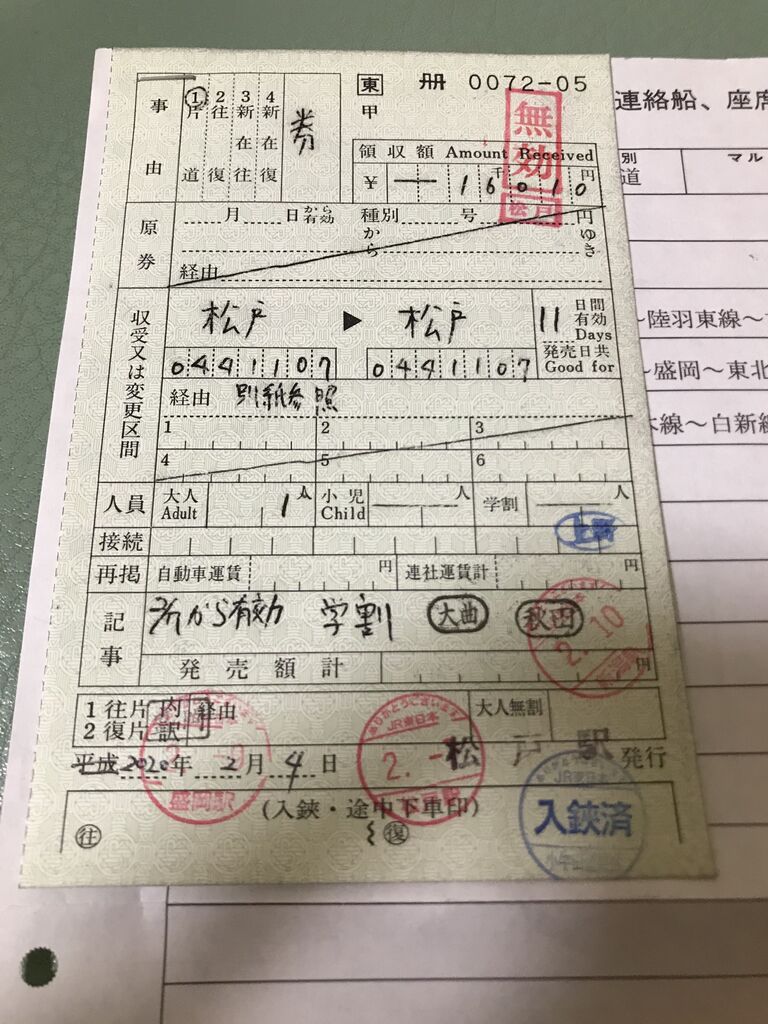 東 冊 0072-05
甲
事由
①片道
2往復
3新在往
4新在復
券
無効
松戸
領収額 Amount Received
¥ 一 16千010円
原券
月 日から有効 種別 号 円
から ゆき
経由
収受又は変更区間
松戸 ▶ 松戸
11日間有効
Days
発売日共
Good for
0441107 0441107
経由 別紙参照
1 2 3
4 5 6
人員 大人 Adult 1人 小児 Child 人 学割 人
上野
接続
再掲 自動車運賃 円 連社運賃計 円
記事
から有効 学割 大曲 秋田
2.10
発売額計 円
1往片 内訳 経由 大人無割
2復片
平成2020年 2月4日 松戸駅 発行
盛岡駅
ありがとうございます
JR東日本
2.-
(入鋏・途中下車印)
往 復
JR東日本
入鋏済
連絡船、座席
別 マル
道
~陸羽東線~
~盛岡~東北
線~白新線